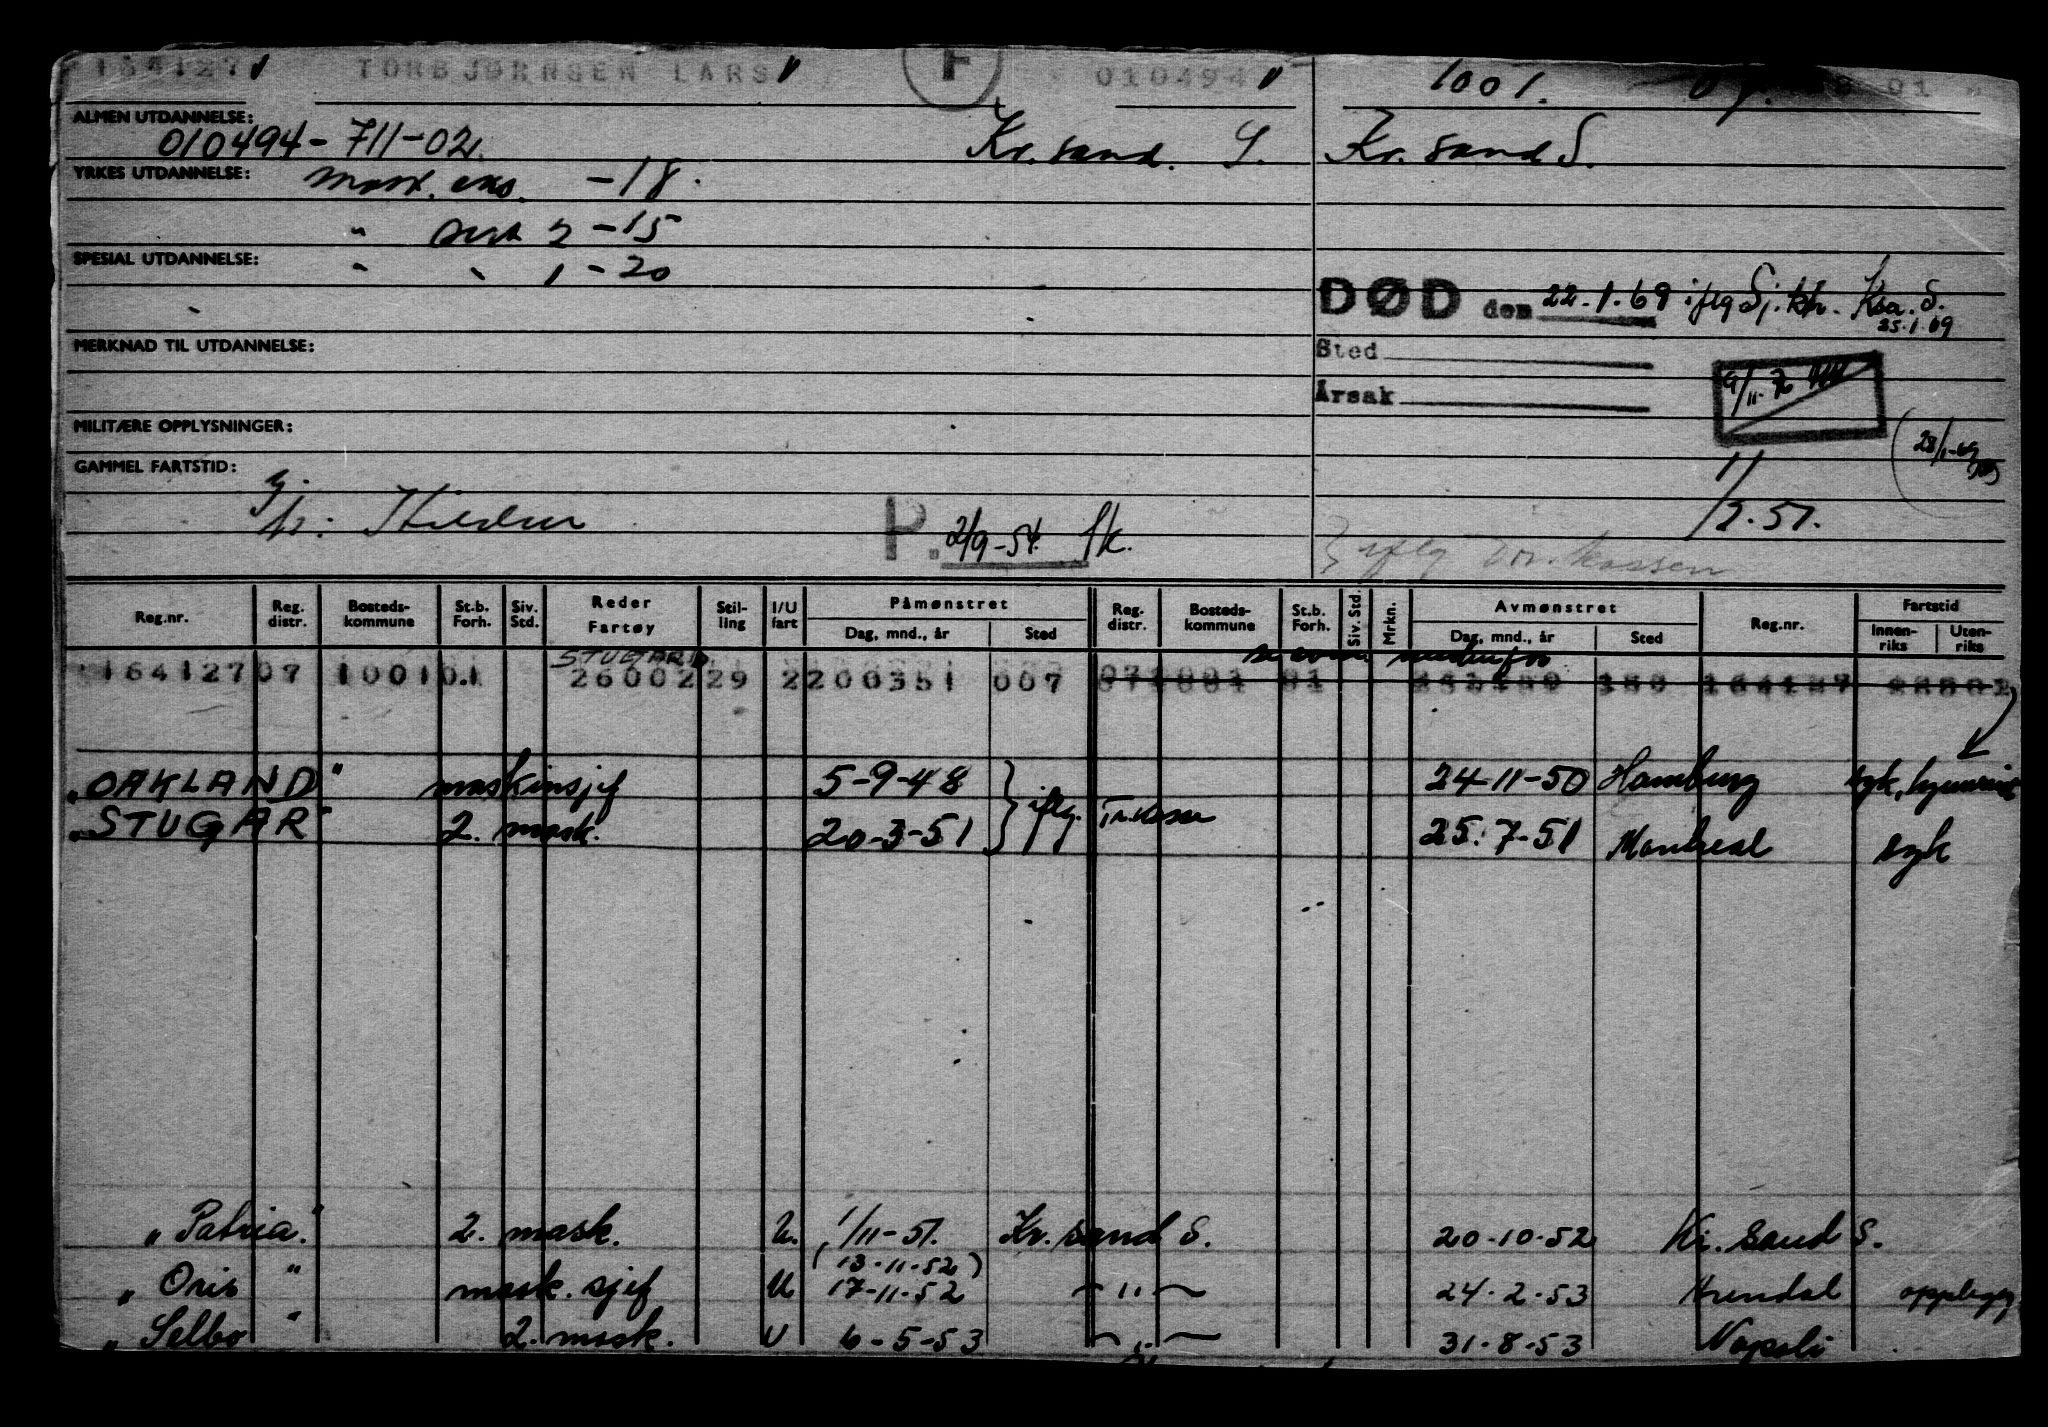 164127 TORBJØRNSEN LARS F 010494 1001. 07. 01
ALMEN UTDANNELSE:
010494-711-02. Kr.sand. S. Kr. sand S.
YRKES UTDANNELSE: mask. eks. -18.
" sert 2 -15
SPESIAL UTDANNELSE: " " 1 -20
DØD den 22.1.69 iflg Sj.ktr. Ksa. S.
25.1.69
Sted
MERKNAD TIL UTDANNELSE:
9/11-76
Årsak
MILITÆRE OPPLYSNINGER:
28/1-69
GAMMEL FARTSTID:
11/2.57.
P. 2/9-54. fk.
} iflg Tr.kassen
Reg.nr. Reg. distr. Bosteds-kommune St.b. Forh. Siv. Std. Reder Fartøy Stil-ling I/U fart Påmønstret Dag, mnd., år Sted Reg. distr. Bosteds-kommune St.b. Forh. Siv. Std. Mrkn. Avmønstret Dag, mnd., år Sted Reg.nr. Fartstid Innen-riks Uten-riks
STUGARD
164127 07 1001 01 26002 29 2 200351 007 071001 01 180 164127
"OAKLAND" maskinsjef 5-9-48 } iflg. Tr.kassen 24-11-50 Hamburg syk, hjemreist
"STUGAR" 2. mask. 20-3-51 25.7-51 Montreal syk
"Patria." 2. mask. U. 1/11-51. Kr. sand S. 20-10-52 Kr. sand S.
(13-11-52)
"Oris" mask. sjef U 17-11-52 — " — 24-2-53 Arendal opplegg
"Selbo" 2. mask. U 6-5-53 — " — 31-8-53 Napoli